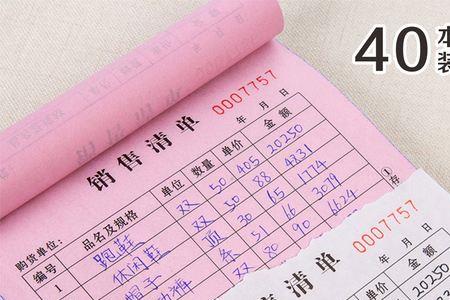 40本装
0007757
销售清单
年 月 日
购货单位:
编号 品名及规格 单位 数量 单价 金额
1 跑鞋 双 50 405 20250
休闲鞋 双 30 88
帽子 顶 65 1774
条 3079
6624
①存
0007757
销售清单
年 月 日
金额
20250